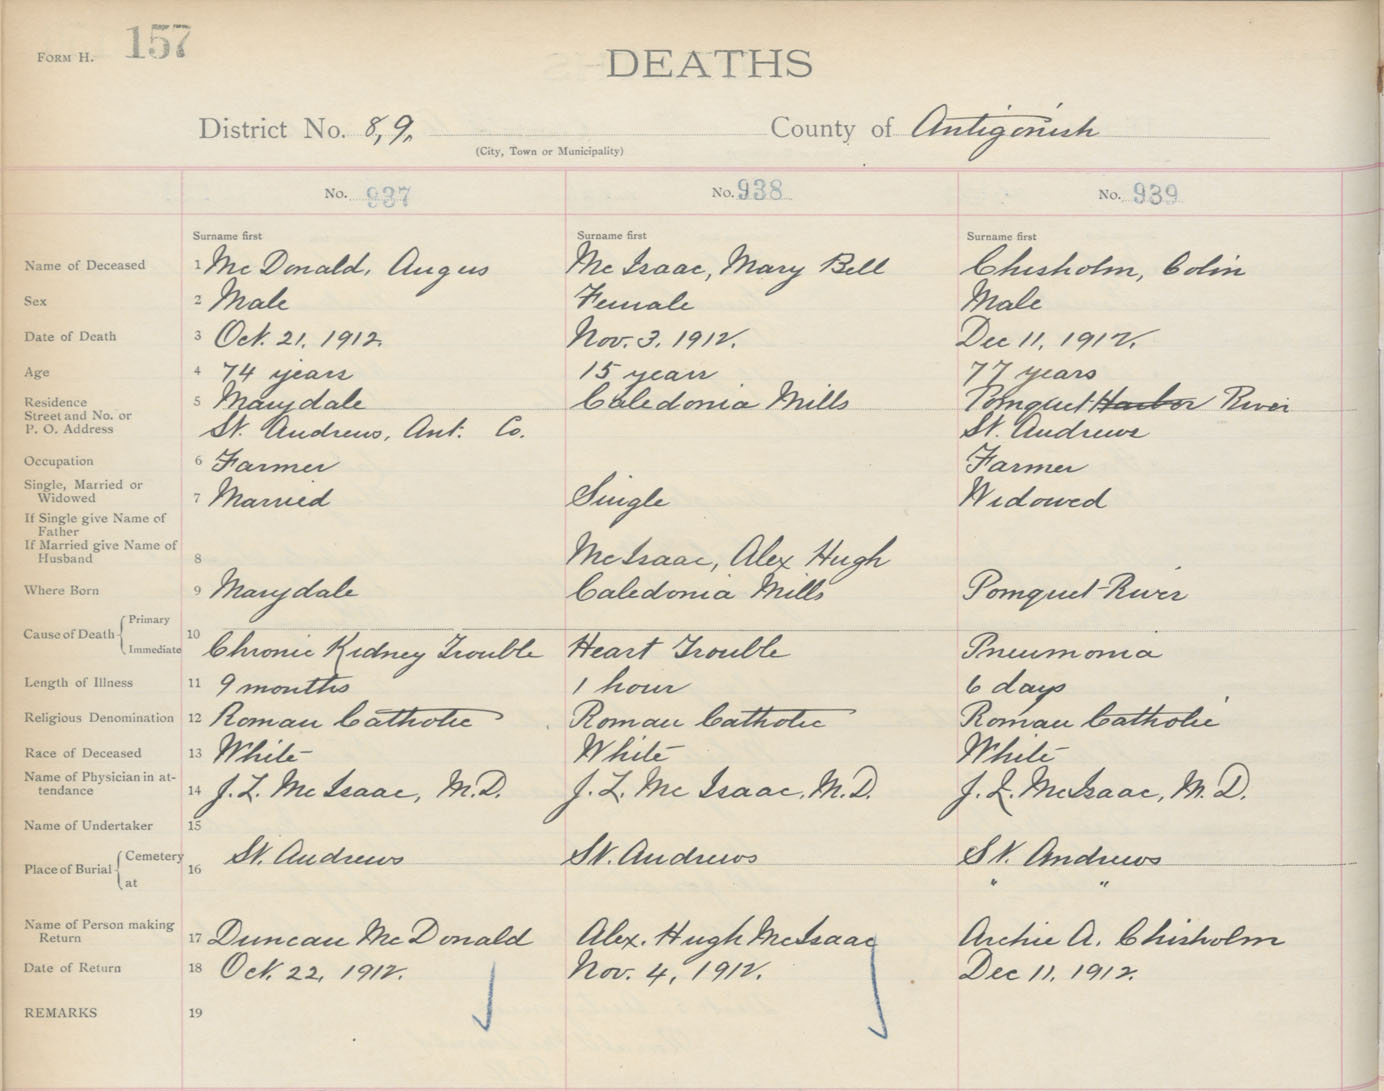 FORM H. 157
DEATHS
District No. 8, 9, County of Antigonish
(City, Town or Municipality)
No. 937 No. 938 No. 939
Surname first Surname first Surname first
Name of Deceased 1 McDonald, Angus McIsaac, Mary Bell Chisholm, Colin
Sex 2 Male Female Male
Date of Death 3 Oct. 21, 1912. Nov. 3, 1912. Dec 11, 1912.
Age 4 74 years 15 years 77 years
Residence 5 Marydale Caledonia Mills Pomquet Harbor River
Street and No. or
P. O. Address St. Andrews, Ant. Co. St. Andrews
Occupation 6 Farmer Farmer
Single, Married or
Widowed 7 Married Single Widowed
If Single give Name of
Father
If Married give Name of
Husband 8 McIsaac, Alex Hugh
Where Born 9 Marydale Caledonia Mills Pomquet River
Cause of Death Primary
Immediate 10 Chronic Kidney Trouble Heart Trouble Pneumonia
Length of Illness 11 9 months 1 hour 6 days
Religious Denomination 12 Roman Catholic Roman Catholic Roman Catholic
Race of Deceased 13 White White White
Name of Physician in at-
tendance 14 J. L. McIsaac, M.D. J. L. McIsaac, M.D. J. L. McIsaac, M.D.
Name of Undertaker 15
Place of Burial Cemetery 16 St. Andrews St. Andrews St. Andrews
at " "
Name of Person making
Return 17 Duncan McDonald Alex. Hugh McIsaac Archie A. Chisholm
Date of Return 18 Oct. 22, 1912. Nov. 4, 1912. Dec 11, 1912.
REMARKS 19